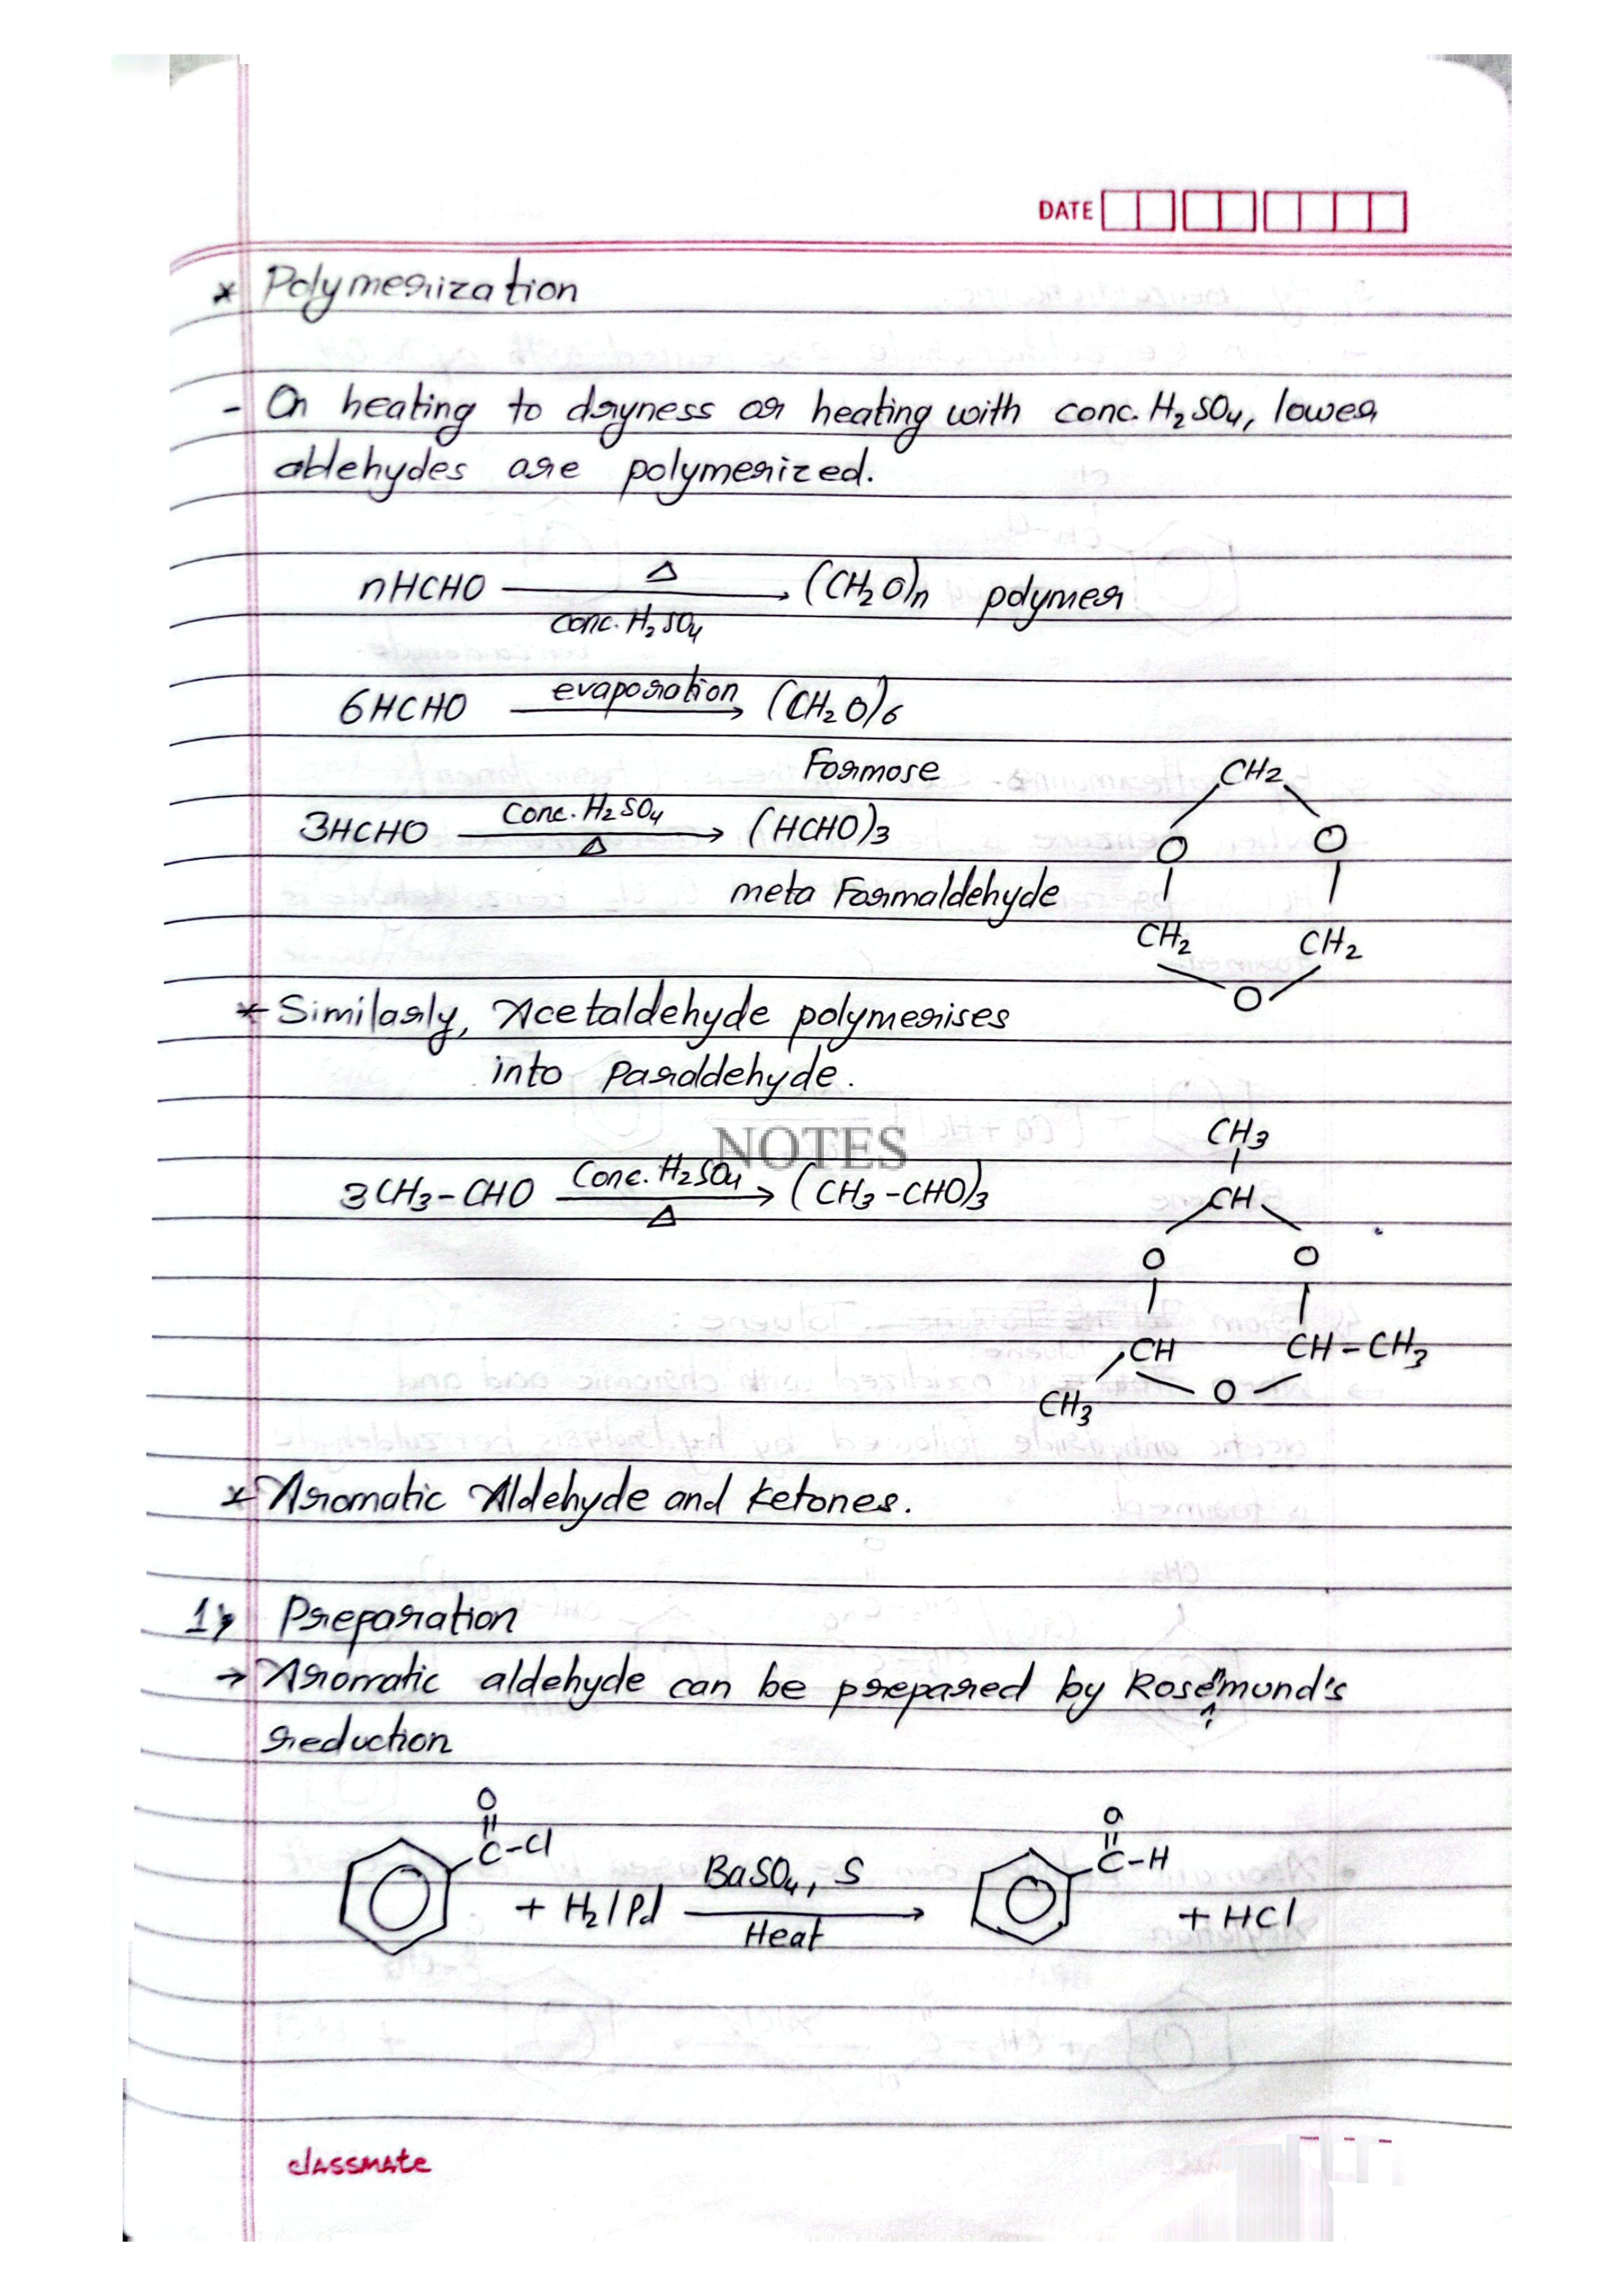 DATE
* Polymerization
- On heating to dryness or heating with conc. H₂SO₄, lower
aldehydes are polymerized.
nHCHO —Δ→ (CH₂O)n polymer
conc. H₂SO₄
6HCHO —evaporation→ (CH₂O)6
Formose
3HCHO —Conc. H₂SO₄→ (HCHO)3
Δ
meta Formaldehyde
CH2
O O
CH₂ CH₂
O
* Similarly, Acetaldehyde polymerises
into Paraldehyde.
NOTES
3CH₃-CHO —Conc. H₂SO₄→ (CH₃-CHO)3
Δ
CH3
CH
O O
CH CH-CH₃
CH₃ O
* Aromatic Aldehyde and Ketones.
1) Preparation
→ Aromatic aldehyde can be prepared by Rosenmund's
reduction
O O
C-Cl C-H
+ H₂/Pd —BaSO₄, S→ + HCl
Heat
classmate